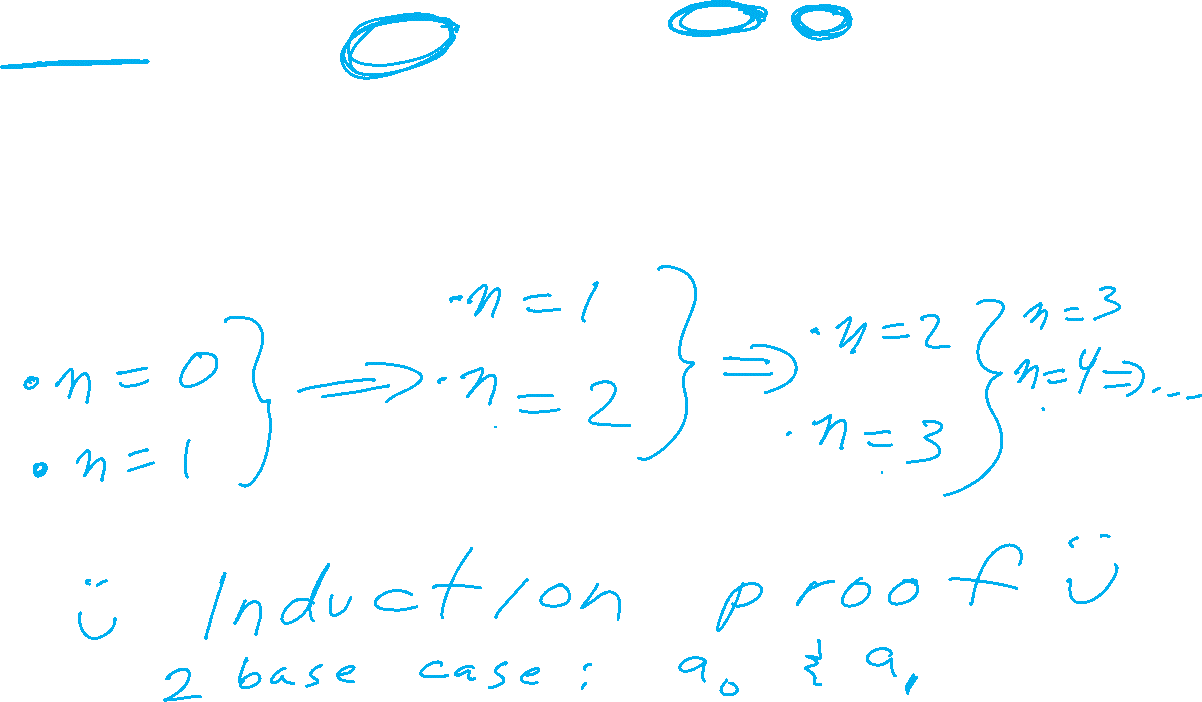 · n = 0 } ⇒ · n = 1 } ⇒ · n = 2 } n = 3
· n = 1 } · n = 2 } · n = 3 } n = 4 ⇒ ...
Induction proof
2 base case : a₀ & a₁